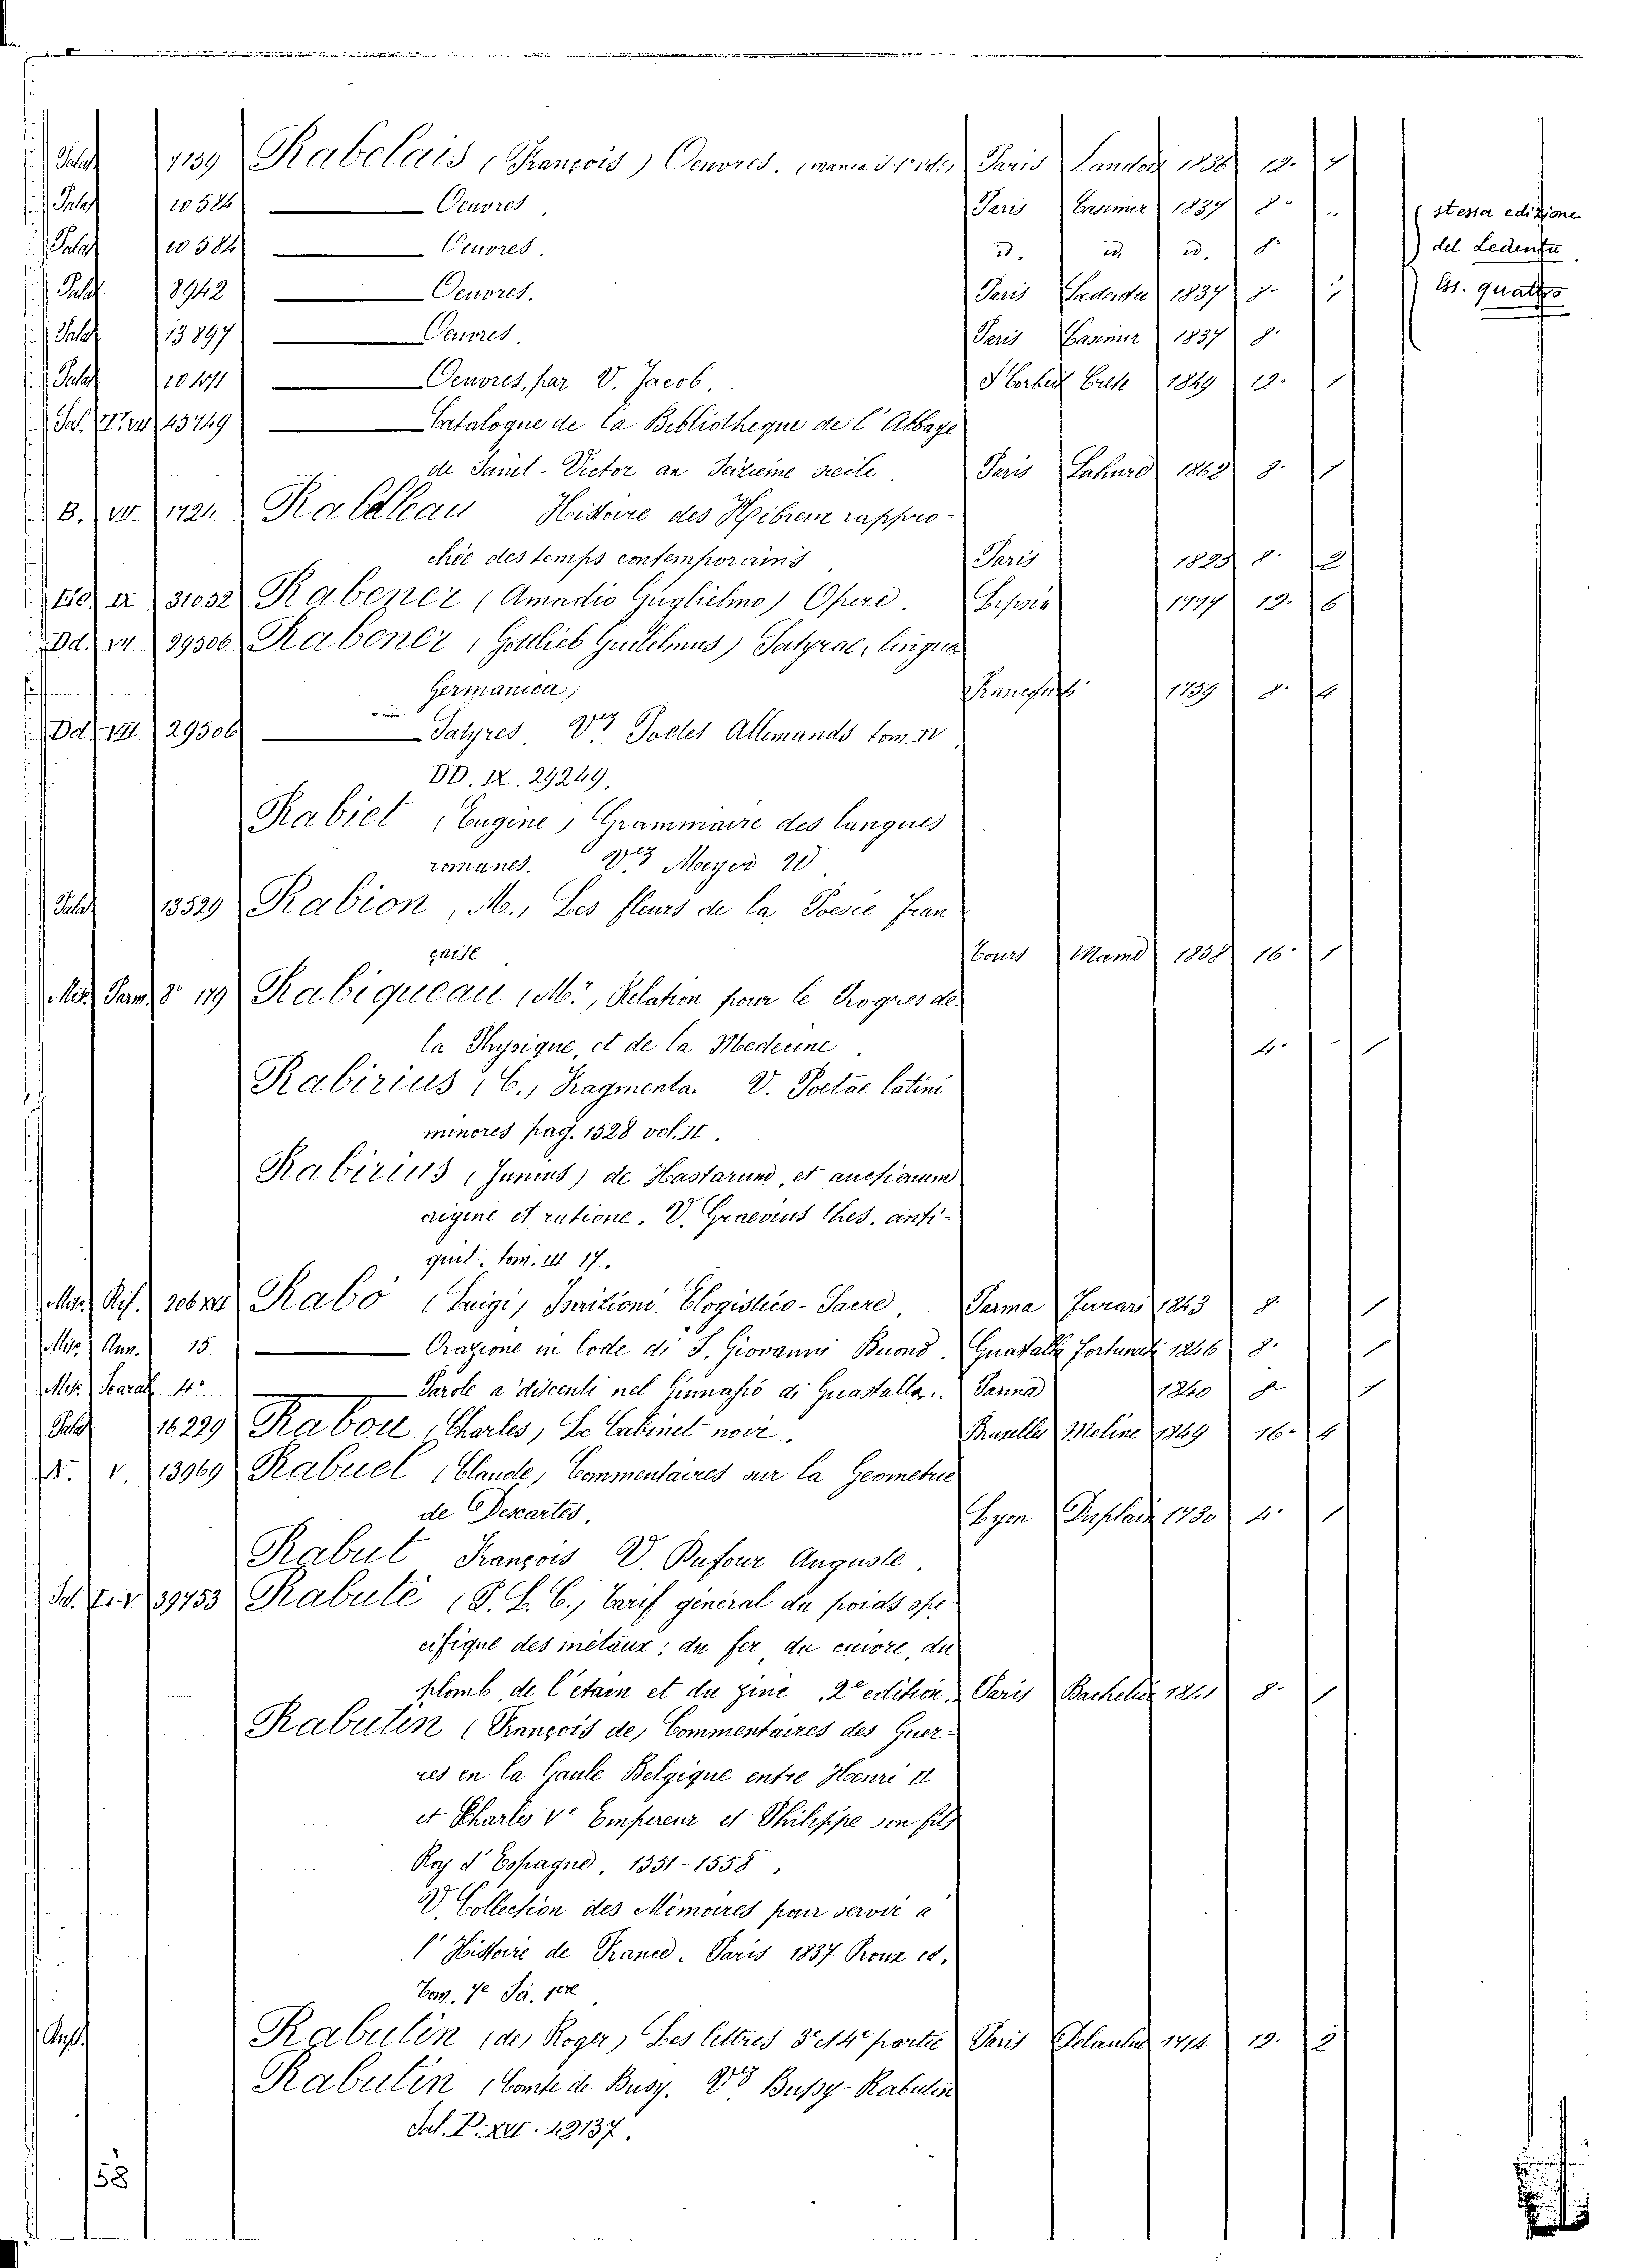 Palat 1139 Rabelais (François) Oeuvres. Paris 12.
Palat 10584 Oeuvres. Paris Casimir 1837 8.° stessa edizione
Palat 10584 Oeuvres. id. id. id. 8.° del Ledentu
Palat. 8942 Oeuvres. Paris Ledentu 1837 8. Es. quattro
Palat 13897 Oeuvres. Paris Casimir 1837 8.
Palat Oeuvres, par V. Jacob. 12. 1
Catalogue de la Bibliotheque de l'Abbaye
de Saint-Victor au Seizieme siecle. Paris Lahure 1862 8. 1
B. Histoire des Hébreux rappro-
chée des temps contemporains Paris 8. 2
31032 Rabener (Amadio Guglielmo) Opere. Lipsia 12. 6
Dd. 29506 Rabener (Gottlieb Guilelmus) Satyrae, lingua
Germanica, 8. 4
Dd. 29506 Satyres V. Poetes Allemands tom. IV
DD. IX. 29249.
Rabiet (Eugine) Grammaire des langues
romanes. V. Meyer W
Palat 13529 Rabion, M., Les fleurs de la Poesie Fran-
çaise Tours Mame 1838 16. 1
Misc. Parm. 8° 119 Rabiqueau (M.r, Relation pour le Progres de
la Physique, et de la Medecine. 4. 1
Rabirius (C., Fragmenta V. Poetae latini
minores pag. 1528 vol. II.
Rabirius (Junius) de Hastarum, et auctionum
origine et ratione. V. Graevius thes. anti-
quit. tom. III 17.
Misc. Rabò (Luigi) Iscrizioni Elogistico-Sacre. Parma 8. 1
Misc. Ann. 15 Orazione in lode di S. Giovanni Buono. Guastalla Fortunati 1846 8. 1
Misc. Scarab. 4° Parole a' discenti nel Ginnasio di Guastalla. Parma 1840 8. 1
Palat 16229 Rabou (Charles, Le Cabinet noir. Bruxelles Meline 1849 16. 4
V. 13969 Rabuel (Claude, Commentaires sur la Geometrie
de Descartes. Lyon Duplain 1730 4. 1
Rabut François V. Dufour Auguste.
39753 Rabuté (P. L. C.) Tarif général du poids spe-
cifique des métaux; du fer, du cuivre, du
plomb, de l'etain et du zinc. 2e edition. Paris Bachelier 1841 8. 1
Rabutin (François de, Commentaires des Guer-
res en la Gaule Belgique entre Henri II
et Charles Ve Empereur et Philippe son fils
Roy d'Espagne. 1551-1558.
V. Collection des Mémoires pour servir a
l'Histoire de France. Paris 1837 Proux ed.
Tom. 7e Sé. 1ere
Rabutin (de, Roger, Les lettres 3e et 4e partie Paris Delaulne 1714 12. 2
Rabutin (Comte de Busy. V. Bussy-Rabutin
Sal. P. XVI. 42137.
158